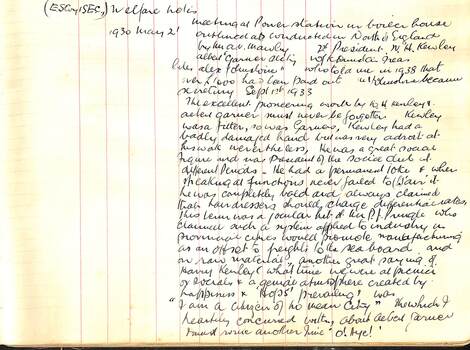 (ESCy, ISEC,) Welfare Notes
1930 May 21 meeting at Power station in boiler house
outlined as conducted in North England
by Mr A.V. Manby 1st President. M. H. Kenley
Albert Garner Secty
like Alex Johnstone who told me in 1938 that
over £1400 had been paid out
secretary Sept 1st 1933
The excellent pioneering work by H Kenley &
Albert Garner must never be forgotten Kenley
was a fitter, so was Garner, Kenley had a
badly damaged hand but was very adroit at
his work nevertheless, He was a great social
figure and was President of the Social club at
different Periods - He had a permanent joke & when
speaking at functions never failed to 'air' it
he was completely bald and always claimed
that hairdressers should charge differential rates
This term was a popular hit of the P.J. Pringle who
claimed such a system applied to industry in
provincial cities would promote manufacturing
as an offset to freights to the sea board and
on raw materials, another great saying of
Harry Kenley (what time we were at picnics
or socials & a genial atmosphere created by
happiness & prevailing) was
"I am a citizen of no mean City" the which I
heartily concurred writing about Albert Garner
must some another time